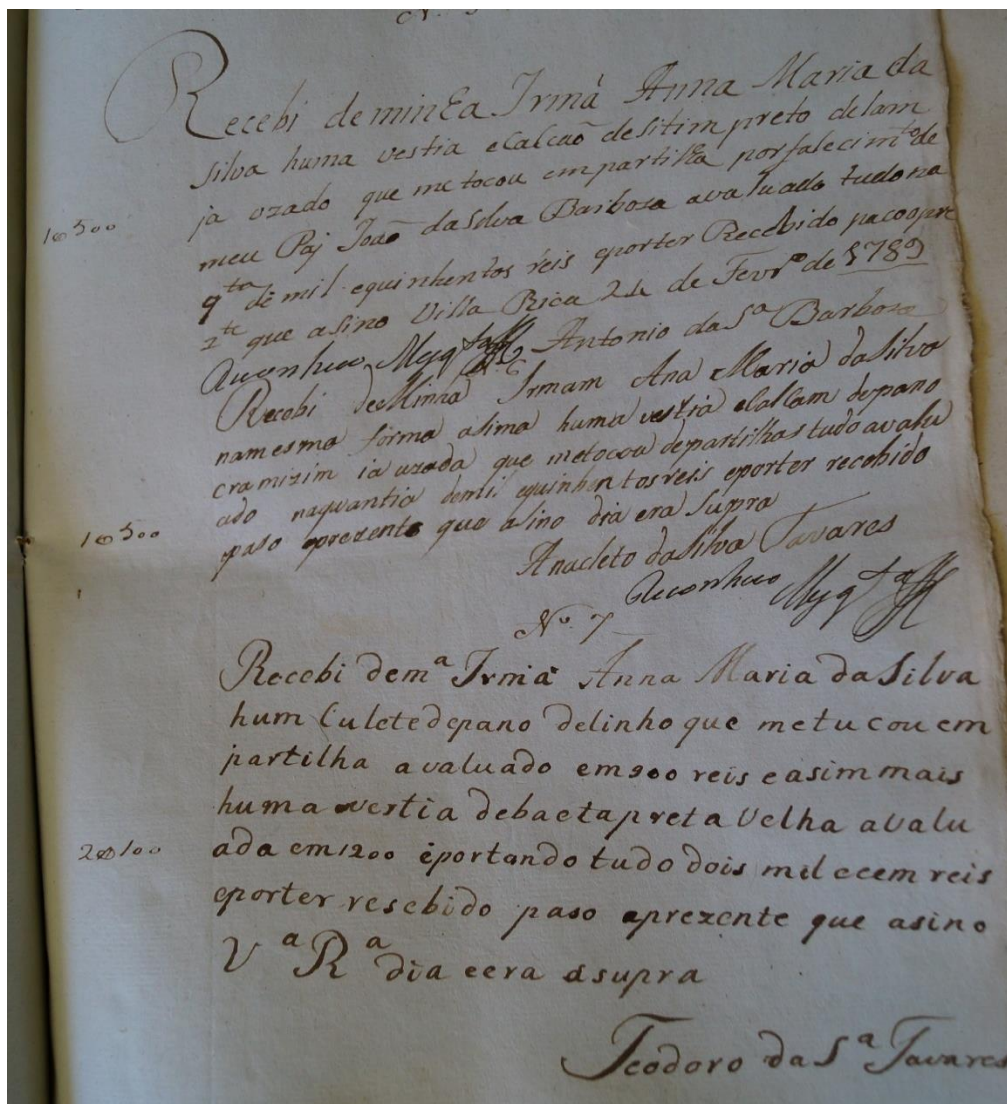 Recebi de minha Irmã Anna Maria da
Silva huma vestia e Calcaõ de sitim preto delam
ja uzado que me tocou em partilha por falecimto de
1@500
meu Paj Joaõ da Silva Barboza avaluado tudo na
qta de mil equinhentos reis eporter Recebido pacoopre
zte que asino Villa Rica 24 de Fevro de 1789
Antonio da Sa Barboza
Recobi de Minha Irmam Ana Maria da Silva
namesma forma asima huma vestia elallam depano
cramizim ia uzada que metocou departilhas tudo avalu
ado naquantia demil equinhentos reis eporter recobido
1@500
paso oprezente que asino dia era Supra
Anacleto da Silva Tavares
No. 7
Recebi dema Irmã Anna Maria da Silva
hum Culete depano delinho que metucou em
partilha avaluado em 900 reis easim mais
huma vestia debaeta preta Velha avalu
2@100
ada em 1200 ėportando tudo dois mil ecem reis
eporter resebido paso aprezente que asino
Va Ra dia eera asupra
Teodoro da Sa Tavares